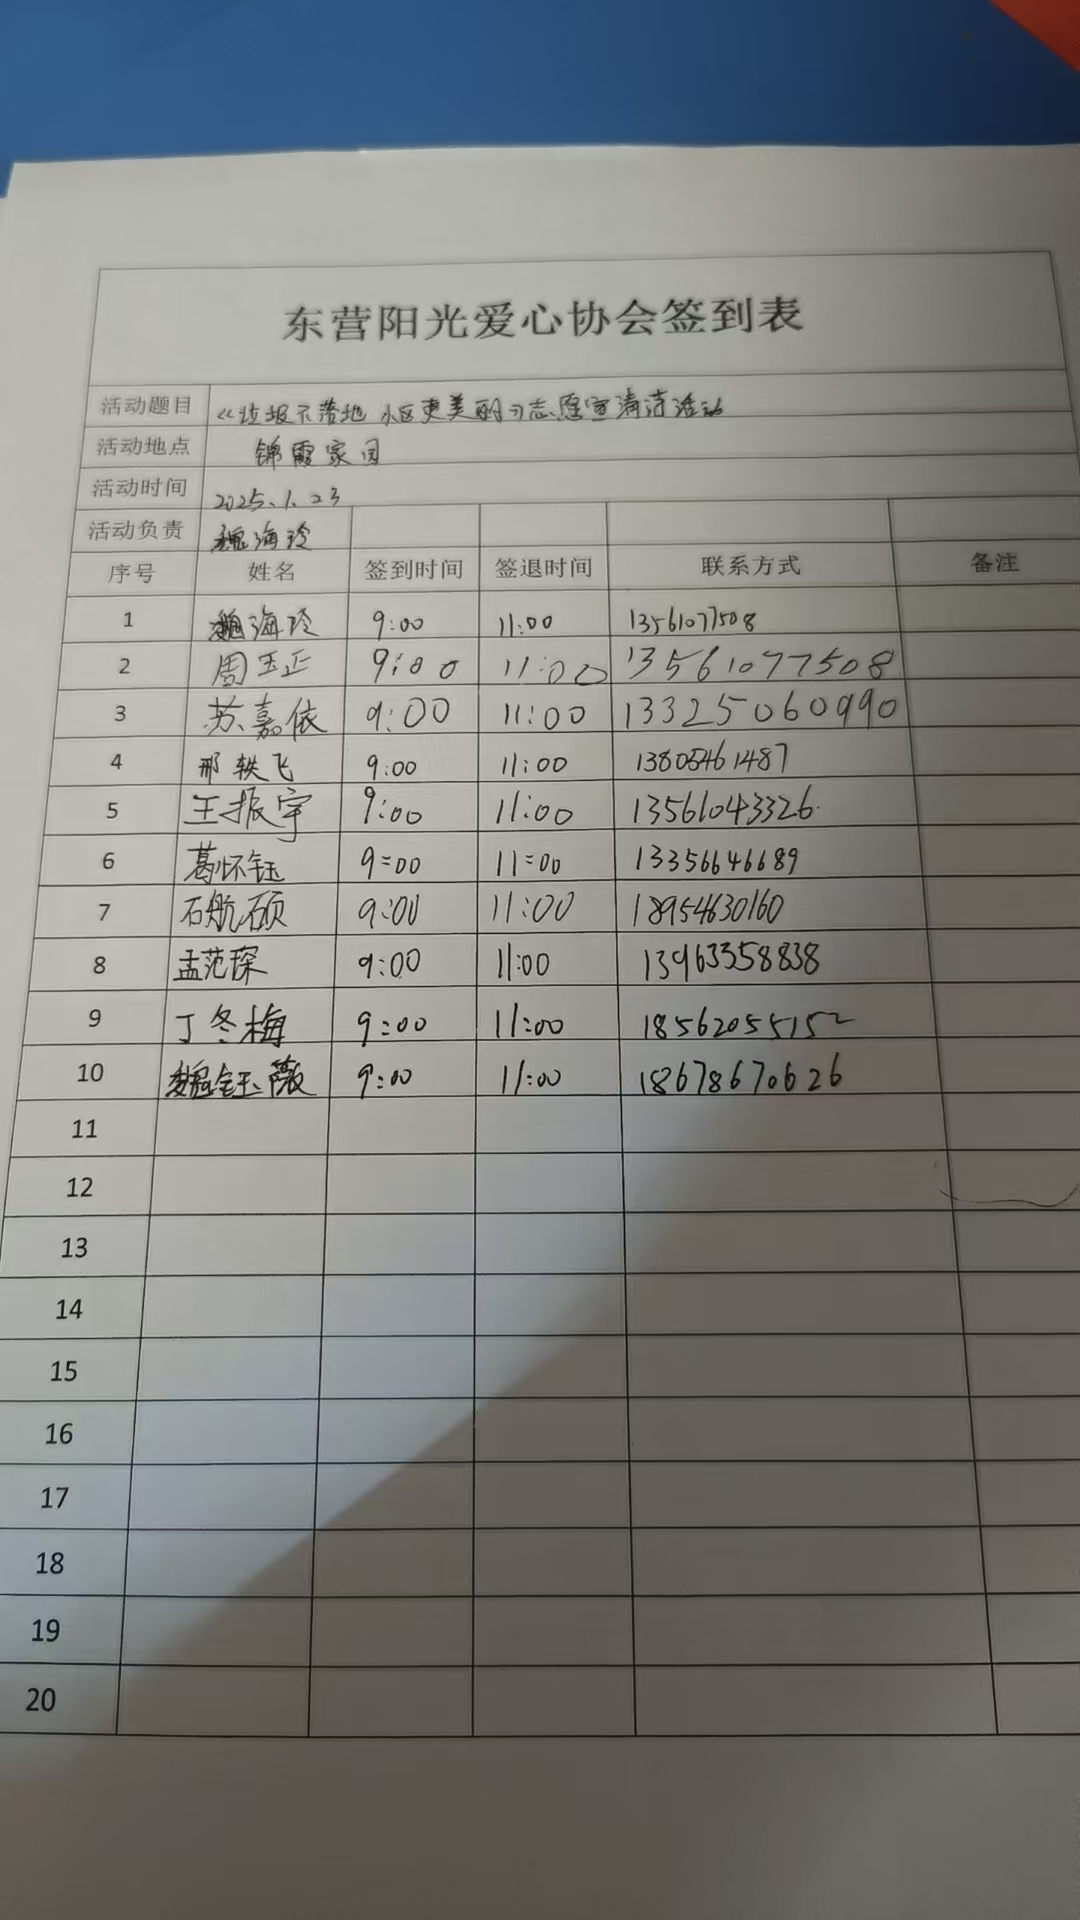 东营阳光爱心协会签到表
活动题目 《垃圾不落地 小区更美丽》志愿宣清洁活动
活动地点 锦霞家园
活动时间 2025.1.23
活动负责 魏海玲
序号 姓名 签到时间 签退时间 联系方式 备注
1 魏海玲 9:00 11:00 13561077508
2 周玉正 9:00 11:00 13561077508
3 苏嘉依 9:00 11:00 13325060990
4 邢轶飞 9:00 11:00 13805461487
5 王振宇 9:00 11:00 13561043326
6 葛怀钰 9:00 11:00 13356646689
7 石航硕 9:00 11:00 18954630160
8 孟范琛 9:00 11:00 13963358838
9 丁冬梅 9:00 11:00 18562055152
10 魏钰薇 9:00 11:00 18678670626
11
12
13
14
15
16
17
18
19
20